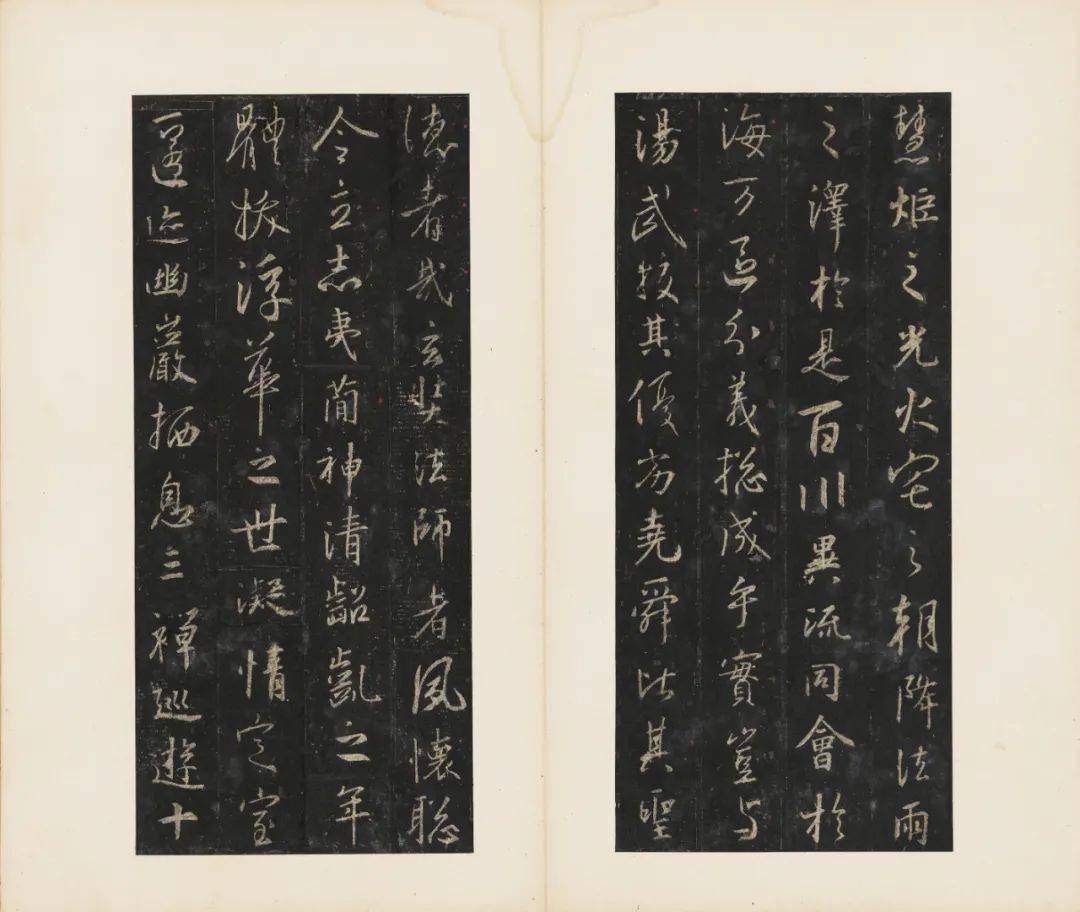 慧炬之光火宅之朝降法雨
之澤於是百川異流同會於
海万區分義揔成乎實豈与
湯武挍其優劣堯舜比其聖
德者哉玄奘法師者夙懷聡
令立志夷簡神清齠齔之年
體拔浮華之世凝情定室
匿迹幽巖栖息三禪巡遊十